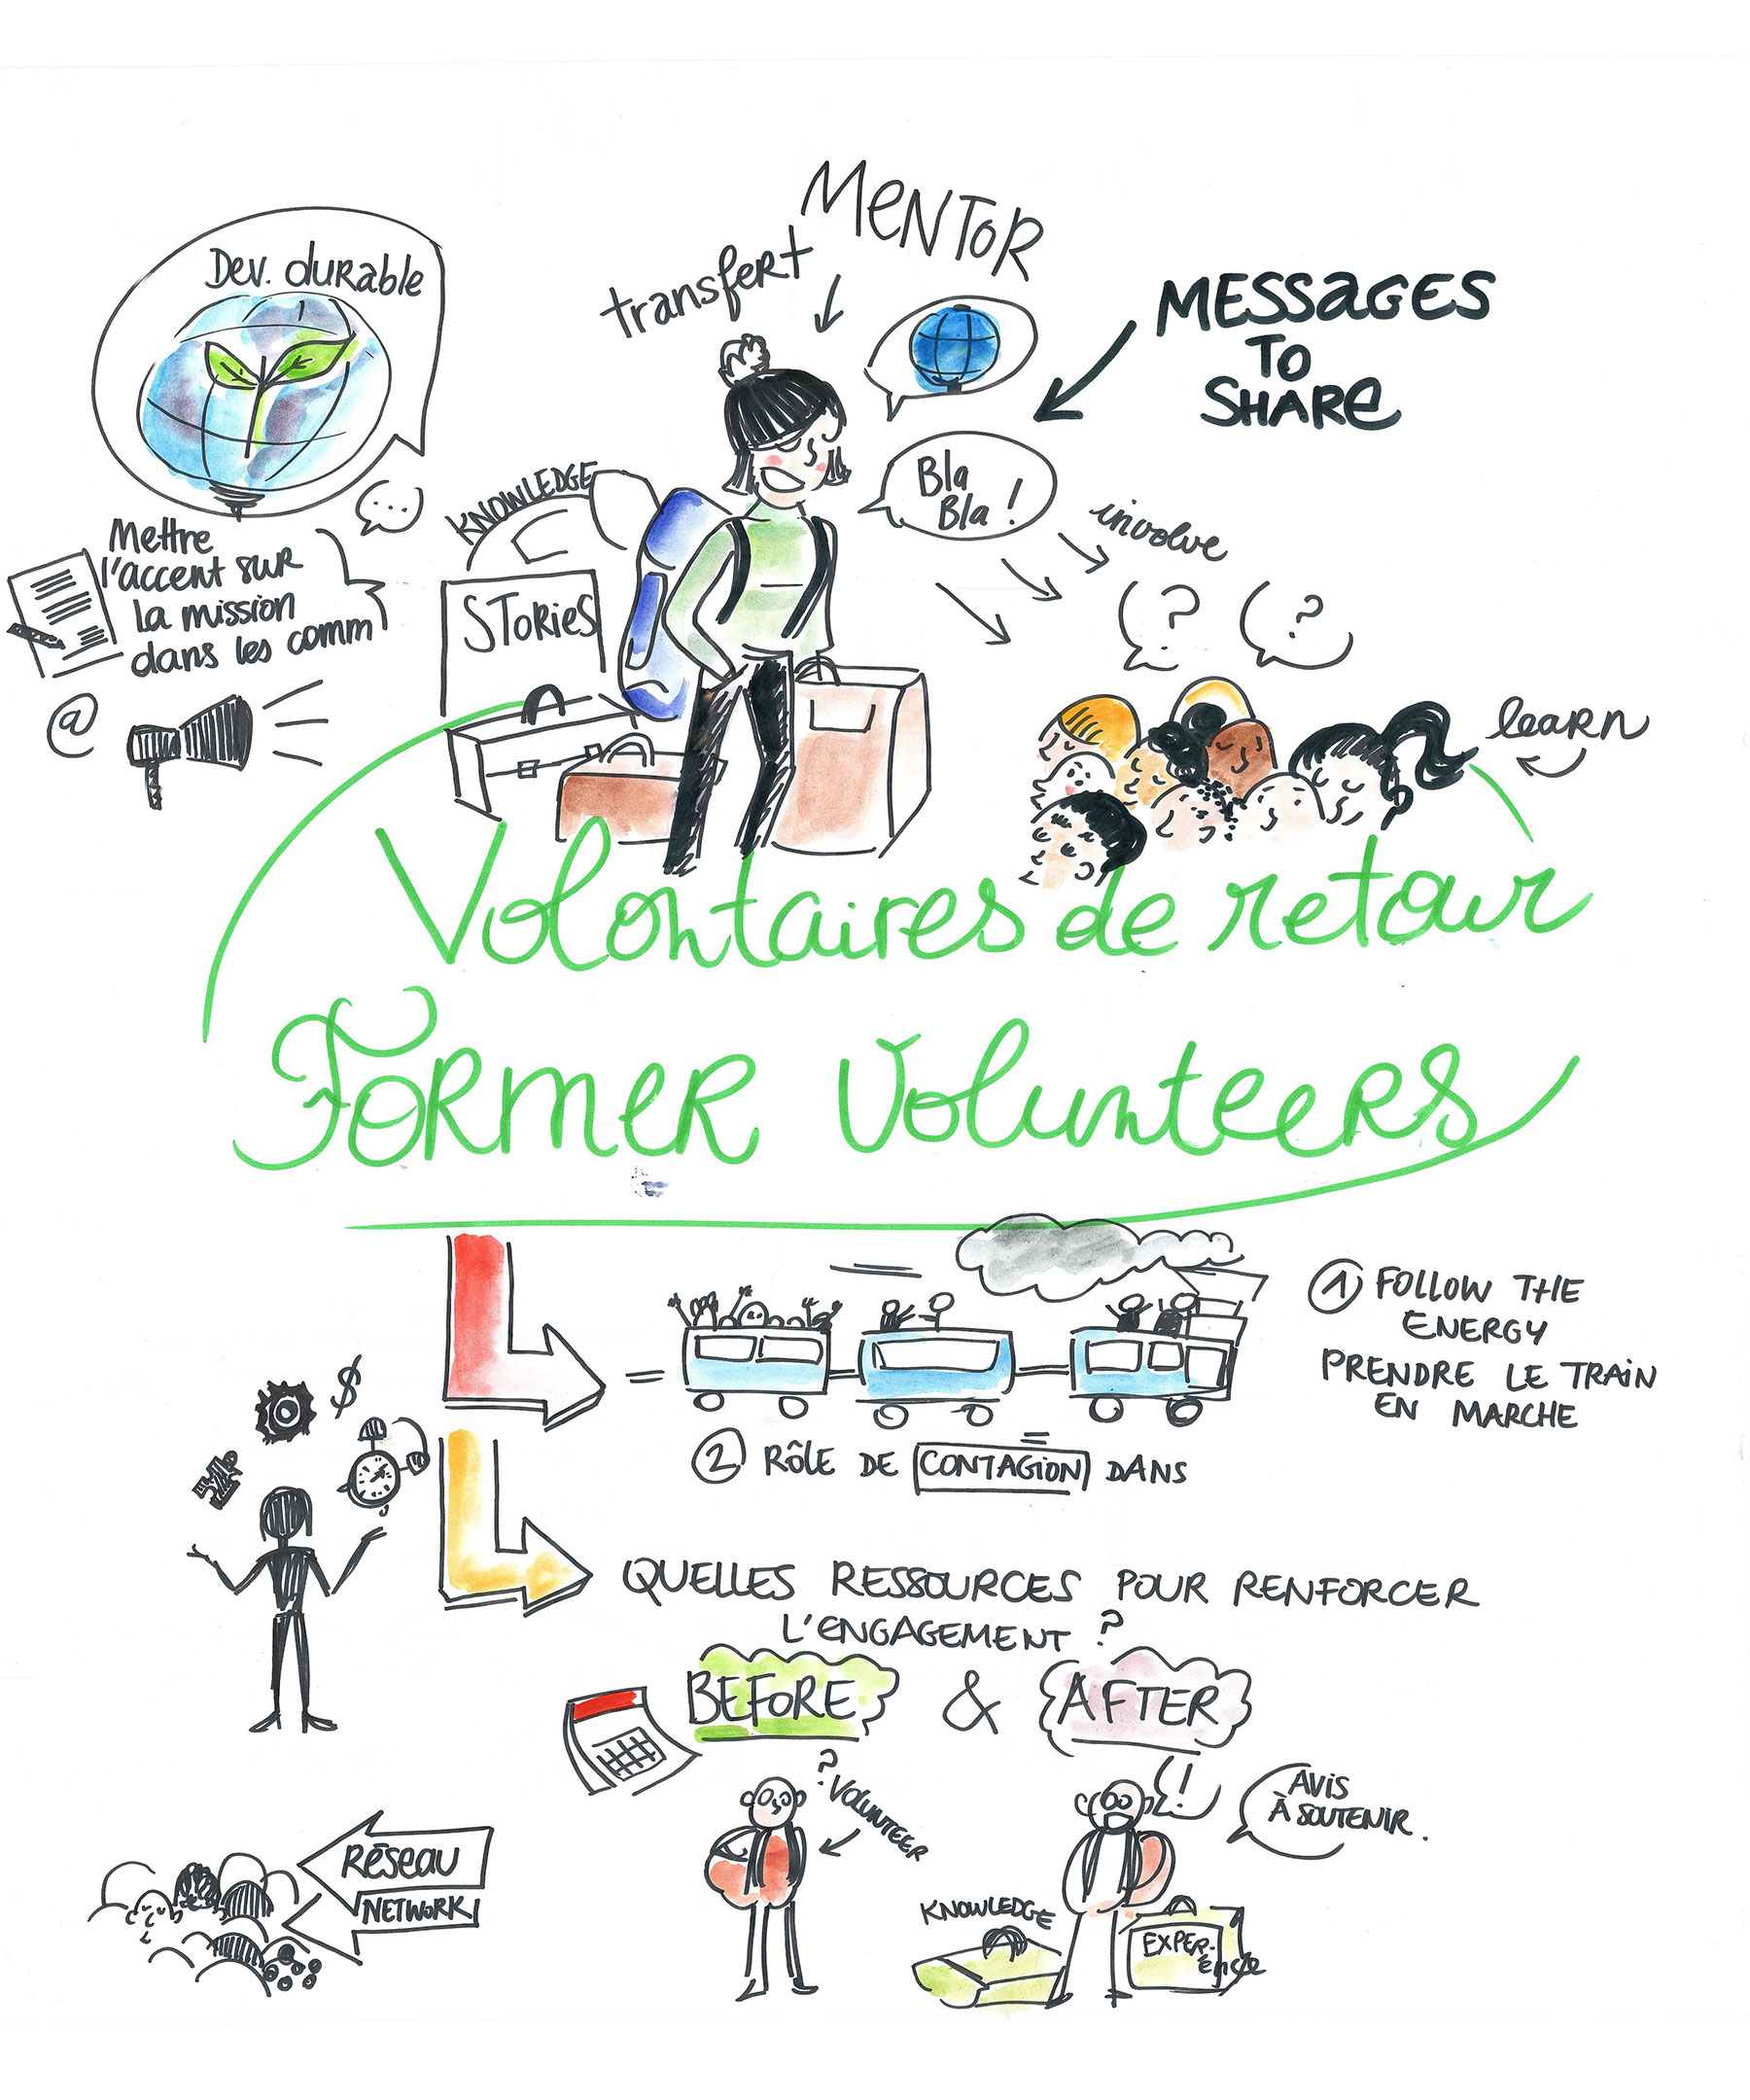 MENTOR
transfert
Dev. durable
MESSAGES
TO
SHARE
Bla
Bla !
KNOWLEDGE
involve
Mettre
l'accent sur
la mission
dans les comm
STORIES
? ?
@
learn
Volontaires de retour
FORMER VOLUNTEERS
1 FOLLOW THE
ENERGY
PRENDRE LE TRAIN
EN MARCHE
$
2 RÔLE DE CONTAGION DANS
QUELLES RESSOURCES POUR RENFORCER
L'ENGAGEMENT ?
BEFORE & AFTER
?
VOLUNTEER
!
AVIS
À SOUTENIR.
RÉSEAU
NETWORK
KNOWLEDGE
EXPER-
ENCE